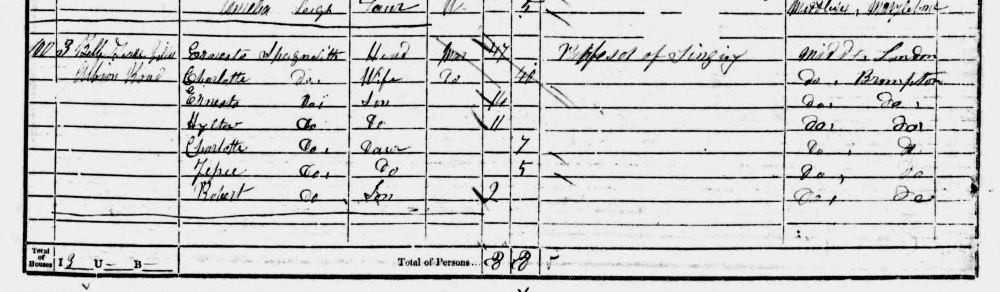 Amelia Leigh Daur W 5 Middlesex, Marylebone
3 Ernesto Spagnoletti Head Mar 47 Professor of Singing Middx, London
Road Charlotte Do, Wife Do 42 do, Brompton
Ernesto Do Son 14 do, do,
Do Do 11 do, do,
Charlotte Do, Daur 7 do, do
Do, Do 5 do, do
Robert Do Son 2 do, do
Total of Houses I 9 U — B — Total of Persons... 8 8 5